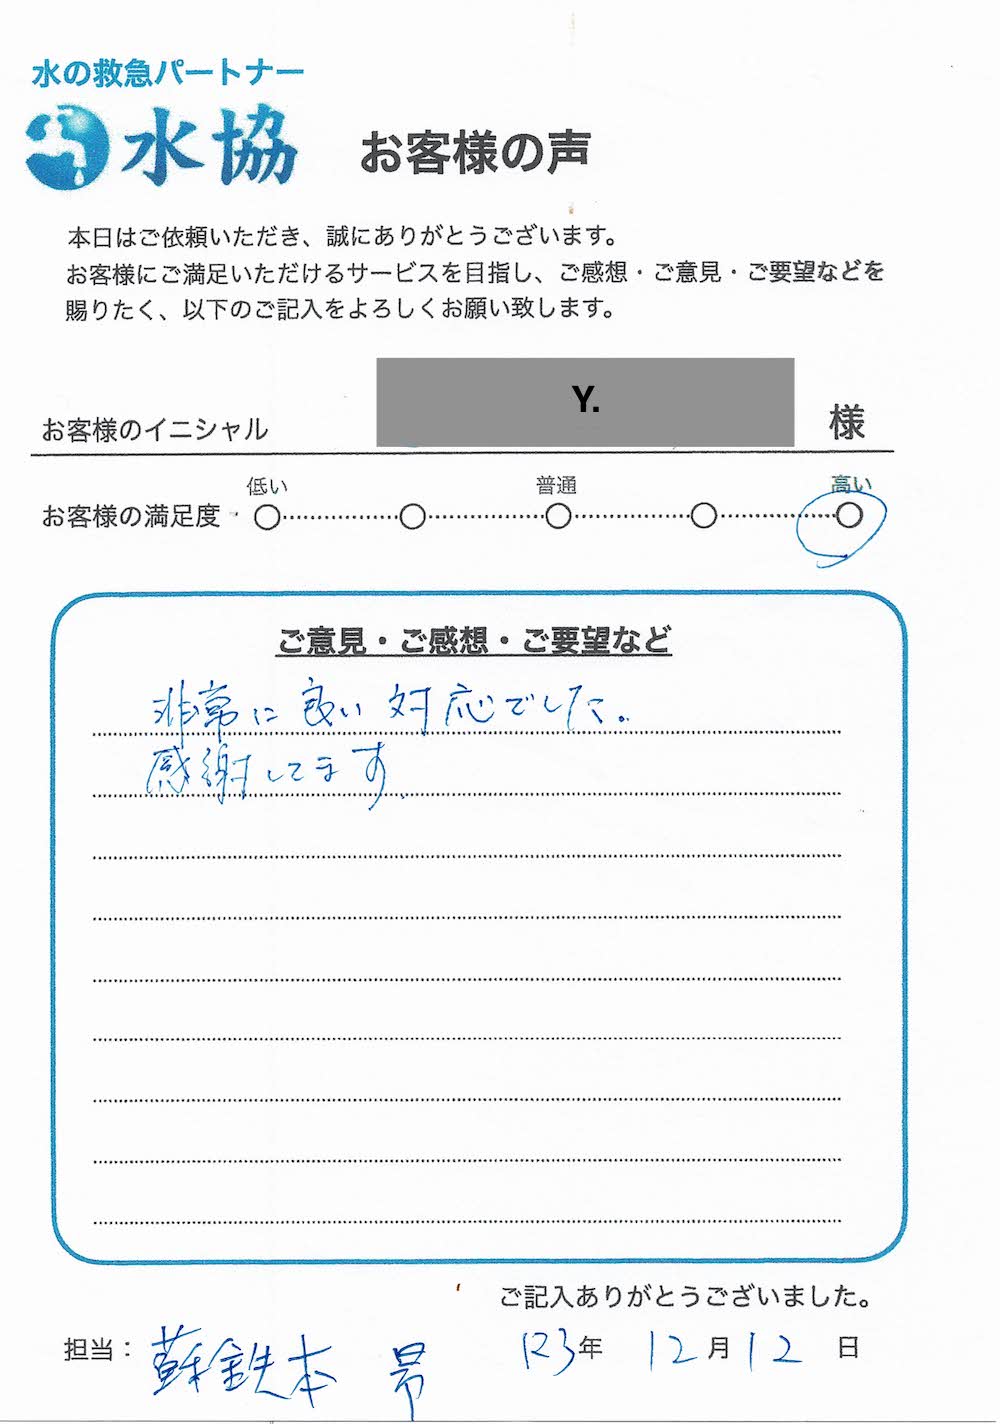 水の救急パートナー
水協
お客様の声
本日はご依頼いただき、誠にありがとうございます。
お客様にご満足いただけるサービスを目指し、ご感想・ご意見・ご要望などを
賜りたく、以下のご記入をよろしくお願い致します。
お客様のイニシャル Y. 様
低い 普通 高い
お客様の満足度
ご意見・ご感想・ご要望など
非常に良い対応でした。
感謝してます.
ご記入ありがとうございました。
担当： 蘇鉄本 昴 R3年 12月12日